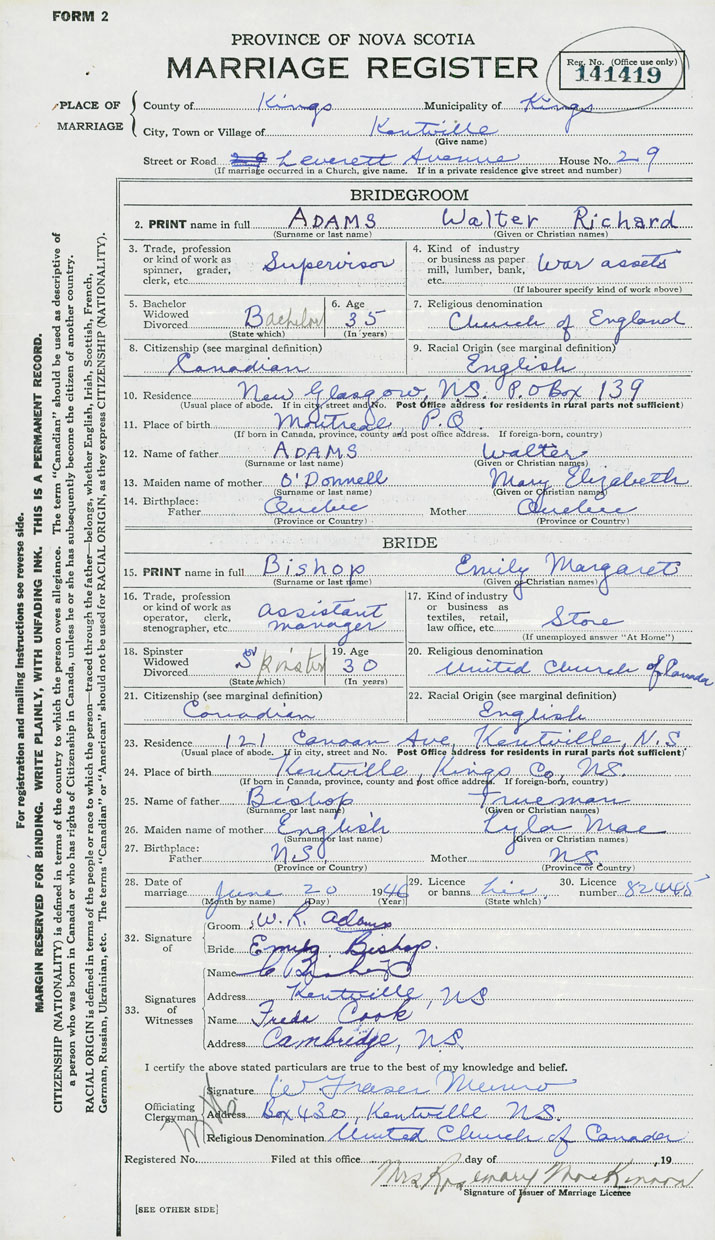 FORM 2
PROVINCE OF NOVA SCOTIA
MARRIAGE REGISTER
Reg. No. (Office use only)
141419
PLACE OF MARRIAGE
County of Kings Municipality of Kings
City, Town or Village of Kentville
(Give name)
Street or Road 29 Leverett Avenue House No. 29
(If marriage occurred in a Church, give name. If in a private residence give street and number)
BRIDEGROOM
2. PRINT name in full ADAMS Walter Richard
(Surname or last name) (Given or Christian names)
3. Trade, profession or kind of work as spinner, grader, clerk, etc. Supervisor
4. Kind of industry or business as paper mill, lumber, bank, etc. War assets
(If labourer specify kind of work above)
5. Bachelor Widowed Divorced Bachelor
(State which)
6. Age 35
(In years)
7. Religious denomination
Church of England
8. Citizenship (see marginal definition)
Canadian
9. Racial Origin (see marginal definition)
English
10. Residence New Glasgow, N.S. P.O Box 139
(Usual place of abode. If in city, street and No. Post Office address for residents in rural parts not sufficient)
11. Place of birth Montreal, P.Q.
(If born in Canada, province, county and post office address. If foreign-born, country)
12. Name of father ADAMS Walter
(Surname or last name) (Given or Christian names)
13. Maiden name of mother O'Donnell Mary Elizabeth
(Surname or last name) (Given or Christian names)
14. Birthplace: Father Quebec Mother Quebec
(Province or Country) (Province or Country)
BRIDE
15. PRINT name in full Bishop Emily Margaret
(Surname or last name) (Given or Christian names)
16. Trade, profession or kind of work as operator, clerk, stenographer, etc. assistant manager
17. Kind of industry or business as textiles, retail, law office, etc. Store
(If unemployed answer "At Home")
18. Spinster Widowed Divorced Spinster
(State which)
19. Age 30
(In years)
20. Religious denomination
United Church of Canada
21. Citizenship (see marginal definition)
Canadian
22. Racial Origin (see marginal definition)
English
23. Residence 121 Canaan Ave, Kentville, N.S
(Usual place of abode. If in city, street and No. Post Office address for residents in rural parts not sufficient)
24. Place of birth Kentville, Kings Co, N.S.
(If born in Canada, province, county and post office address. If foreign-born, country)
25. Name of father Bishop Trueman
(Surname or last name) (Given or Christian names)
26. Maiden name of mother English Lyla Mae
(Surname or last name) (Given or Christian names)
27. Birthplace: Father N.S. Mother N.S.
(Province or Country) (Province or Country)
28. Date of marriage June 20 1946
(Month by name) (Day) (Year)
29. Licence or banns Lic.
(State which)
30. Licence number 824485
32. Signature of
Groom W. R. Adams
Bride Emily Bishop.
33. Signatures of Witnesses
Name Bishop
Address Kentville, NS
Name Freda Cook
Address Cambridge, N.S.
I certify the above stated particulars are true to the best of my knowledge and belief.
Officiating Clergyman
Signature W Fraser Munro
Address Box 430, Kentville N.S.
Religious Denomination United Church of Canada
Registered No. Filed at this office day of , 19
Mrs Rosemary MacKinnon
Signature of Issuer of Marriage Licence
[SEE OTHER SIDE]
For registration and mailing instructions see reverse side.
MARGIN RESERVED FOR BINDING. WRITE PLAINLY, WITH UNFADING INK. THIS IS A PERMANENT RECORD.
CITIZENSHIP (NATIONALITY) is defined in terms of the country to which the person owes allegiance. The term "Canadian" should be used as descriptive of
a person who was born in Canada or who has rights of Citizenship in Canada, unless he or she has subsequently become the citizen of another country.
RACIAL ORIGIN is defined in terms of the people or race to which the person—traced through the father—belongs, whether English, Irish, Scottish, French,
German, Russian, Ukrainian, etc. The terms "Canadian" or "American" should not be used for RACIAL ORIGIN, as they express CITIZENSHIP (NATIONALITY).